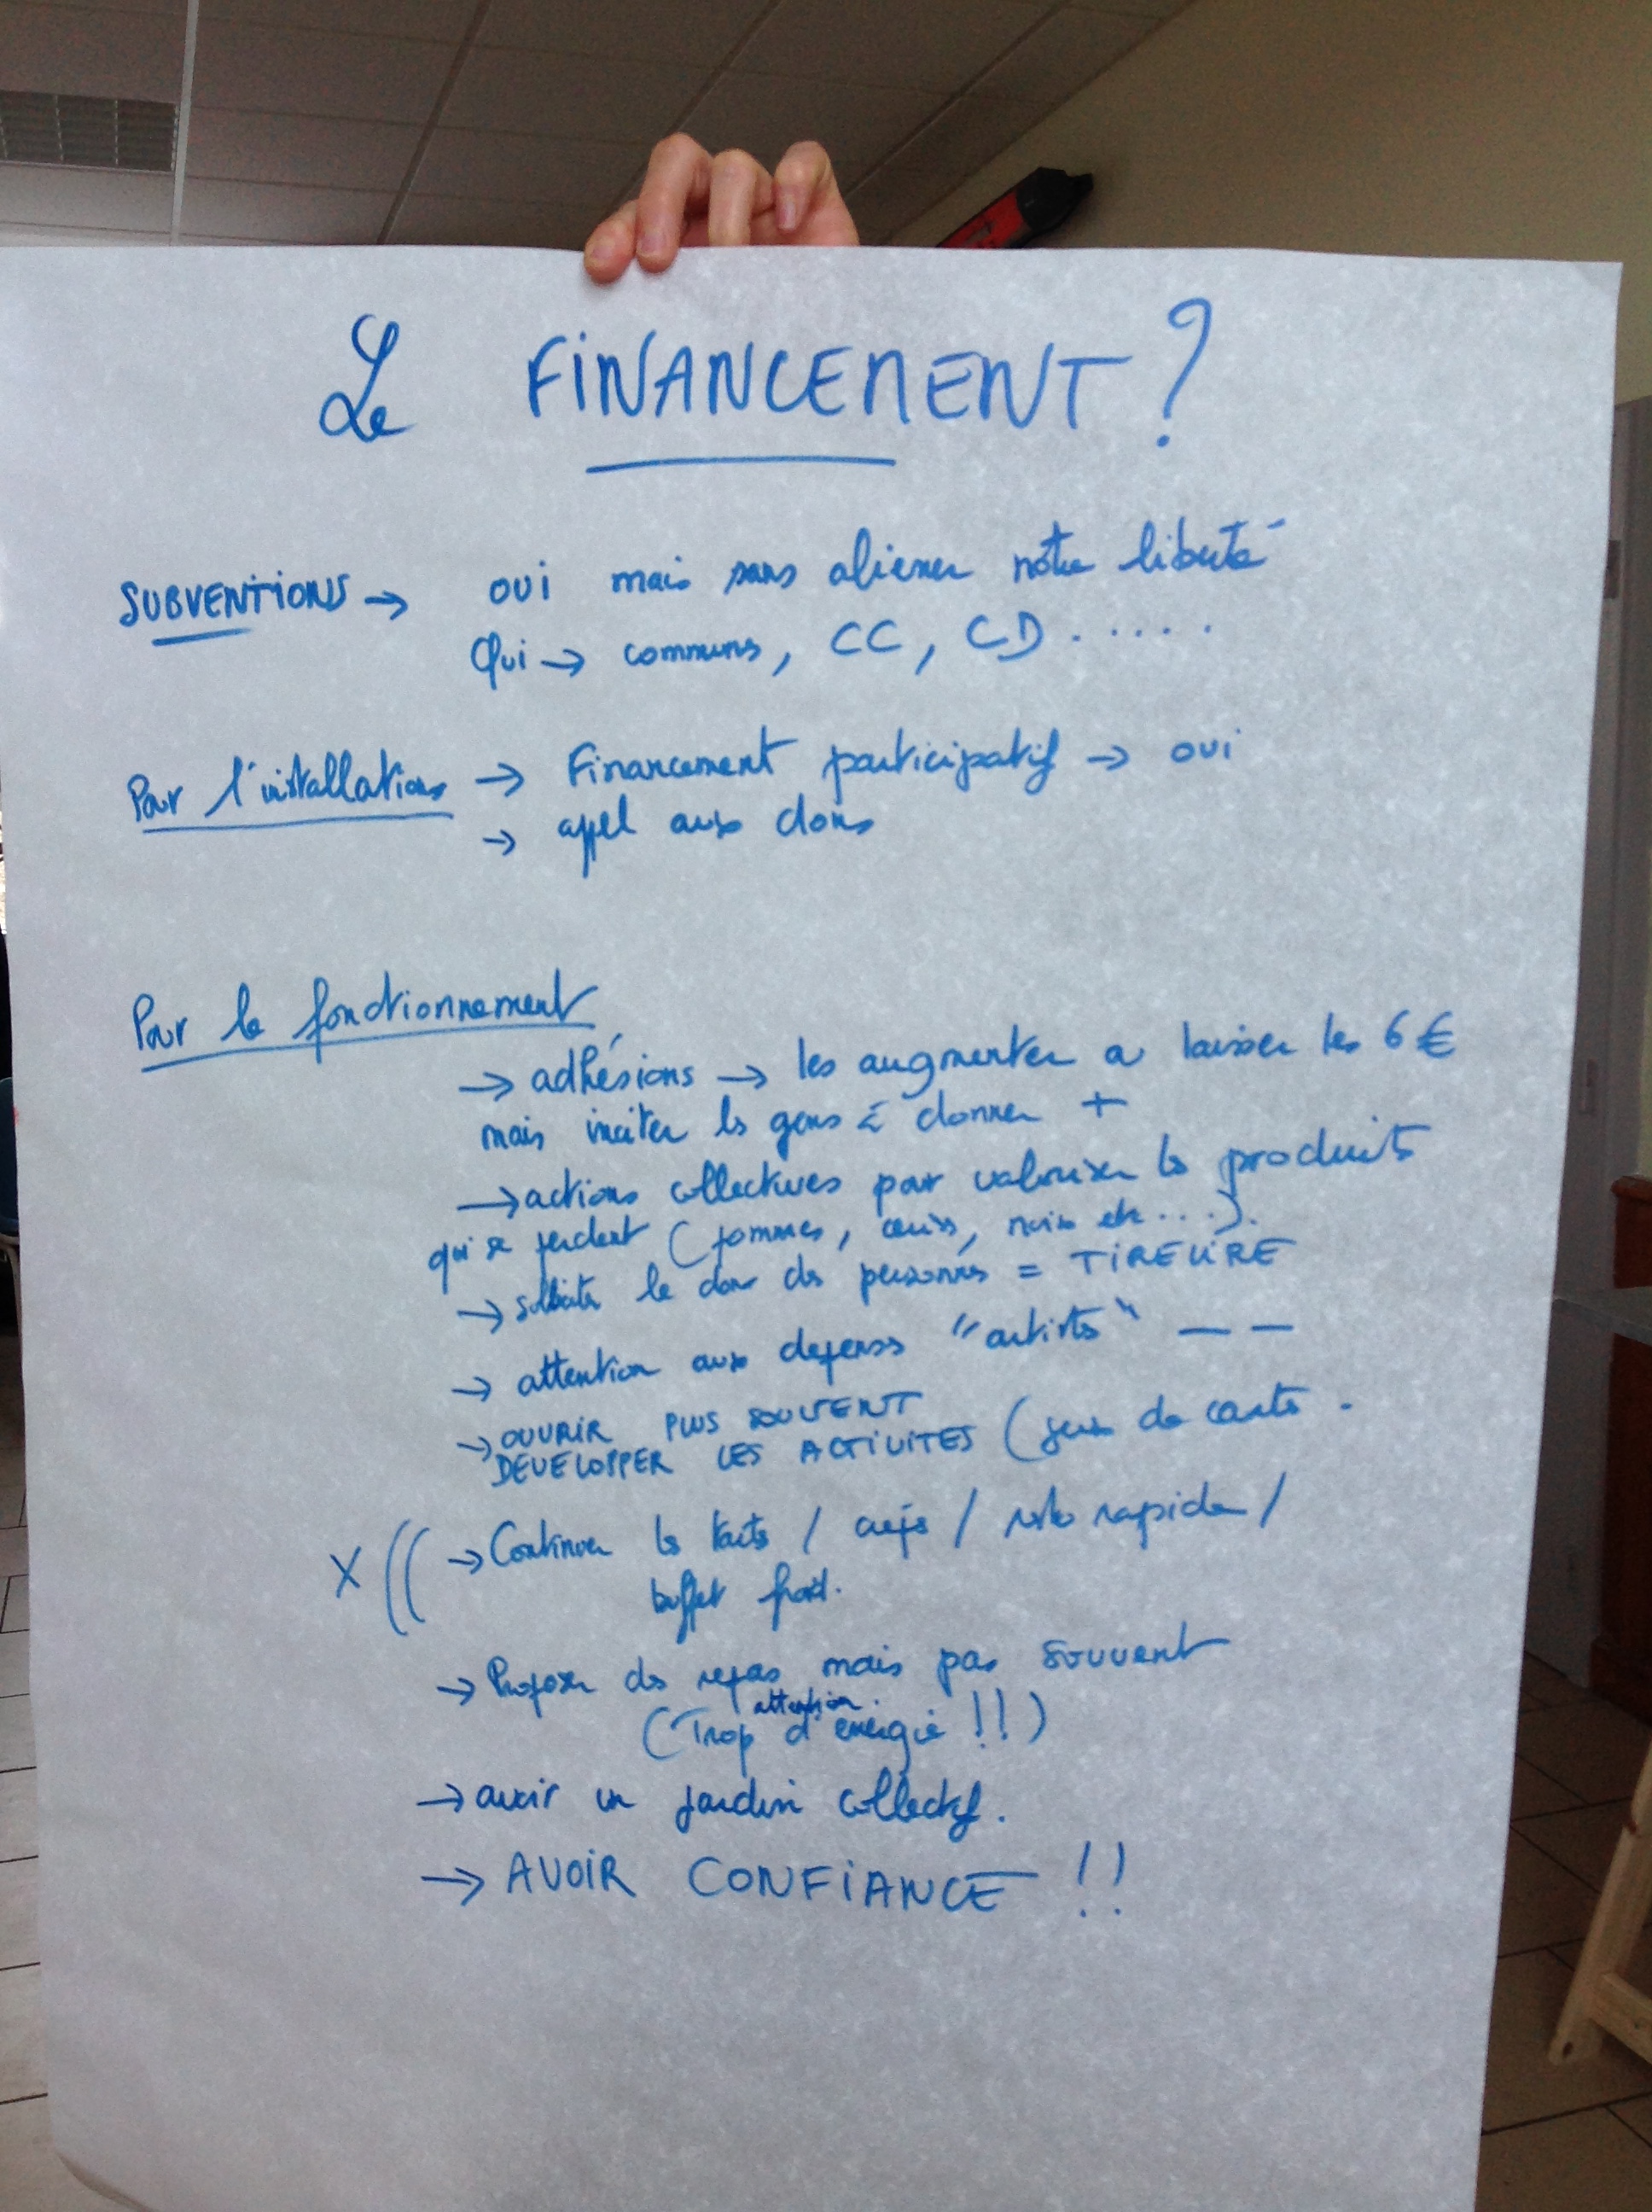 Le FINANCEMENT ?
SUBVENTIONS → oui mais sans aliener notre liberté
Qui → communes, CC, CD .....
Pour l'installation → Financement participatif → oui
→ appel aux dons
Pour le fonctionnement
→ adhésions → les augmenter a laisser les 6 €
mais inciter les gens à donner +
→ actions collectives pour valoriser les produits
qui se perdent (pommes, noix etc ...).
→ solliciter le don des personnes = TIRELIRE
→ attention aux depenses "artistes" — —
→ OUVRIR PLUS SOUVENT
DEVELOPPER LES ACTIVITES (jeux de carte .
X (( → Continuer les / / resto rapide /
buffet froid.
→ Proposer des repas mais pas souvent
attention
(Trop d'énergie !!)
→ avoir un jardin collectif.
→ AVOIR CONFIANCE !!